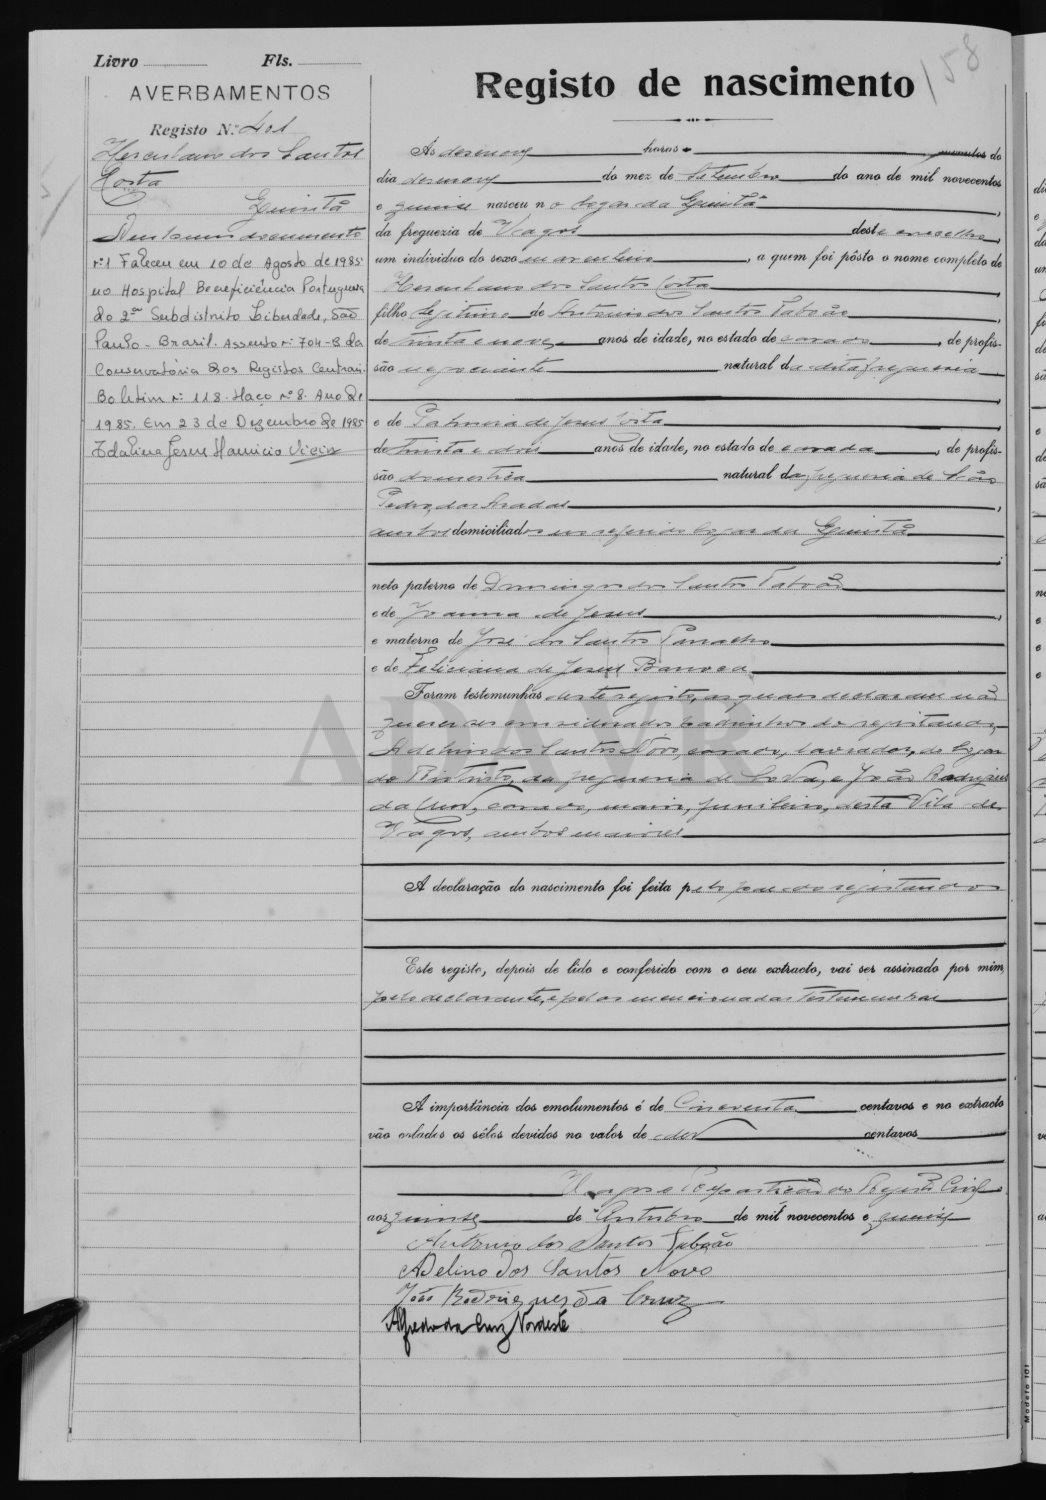 Livro Fls.
AVERBAMENTOS
Registo N.º 401
Herculano dos Santos
Costa
Quintã
documento
nº 1 Faleceu em 10 de Agosto de 1985
no Hospital Beneficiência Portuguesa
do 2º Subdistrito Liberdade, São
Paulo - Brasil. Assento nº 704-B da
Conservatória dos Registos Centrais.
Boletim nº 118. Maço nº 8. Ano de
1985. Em 23 de Dezembro de 1985
Idalina Jesus Mauricio Vieira
158
Registo de nascimento
Ás desenove horas minutos do
dia desenove do mez de Setembro do ano de mil novecentos
e quinze nasceu no logar da Quintã
da freguezia de Vagos deste concelho,
um individuo do sexo masculino, a quem foi pôsto o nome completo de
Herculano dos Santos Costa
filho legitimo de Antonio dos Santos Taboão,
de trinta e nove anos de idade, no estado de casado, de profis-
são negociante natural da dita freguezia
e de de Jesus
de trinta e dois anos de idade, no estado de casada, de profis-
são domestica natural da freguezia de São
Pedro,
ambos domiciliados no referido logar da Quintã
neto paterno de Domingos dos Santos Taboão
e de Joanna de Jesus
e materno de José dos Santos
e de Feliciana de Jesus
Foram testemunhas deste registo, as quaes declararam não
querer ser considerados padrinhos do registando,
Adelino dos Santos Novo, casado, lavrador, do logar
da freguezia de e João Rodrigues
da Cruz, casado, desta Vila de
Vagos, ambos maiores
A declaração do nascimento foi feita pelo pae do registando
Este registo, depois de lido e conferido com o seu extracto, vai ser assinado por mim,
pelo declarante, e pelas mencionadas testemunhas
A importância dos emolumentos é de Cincoenta centavos e no extracto
vão colados os sêlos devidos no valor de dez centavos
Vagos e Repartição do Registo Civil
aos quinze de Outubro de mil novecentos e quinze
Antonio dos Santos Taboão
Adelino dos Santos Novo
João Rodrigues da Cruz
Alfredo da Cruz Nordeste
ADAVR
Modelo 101